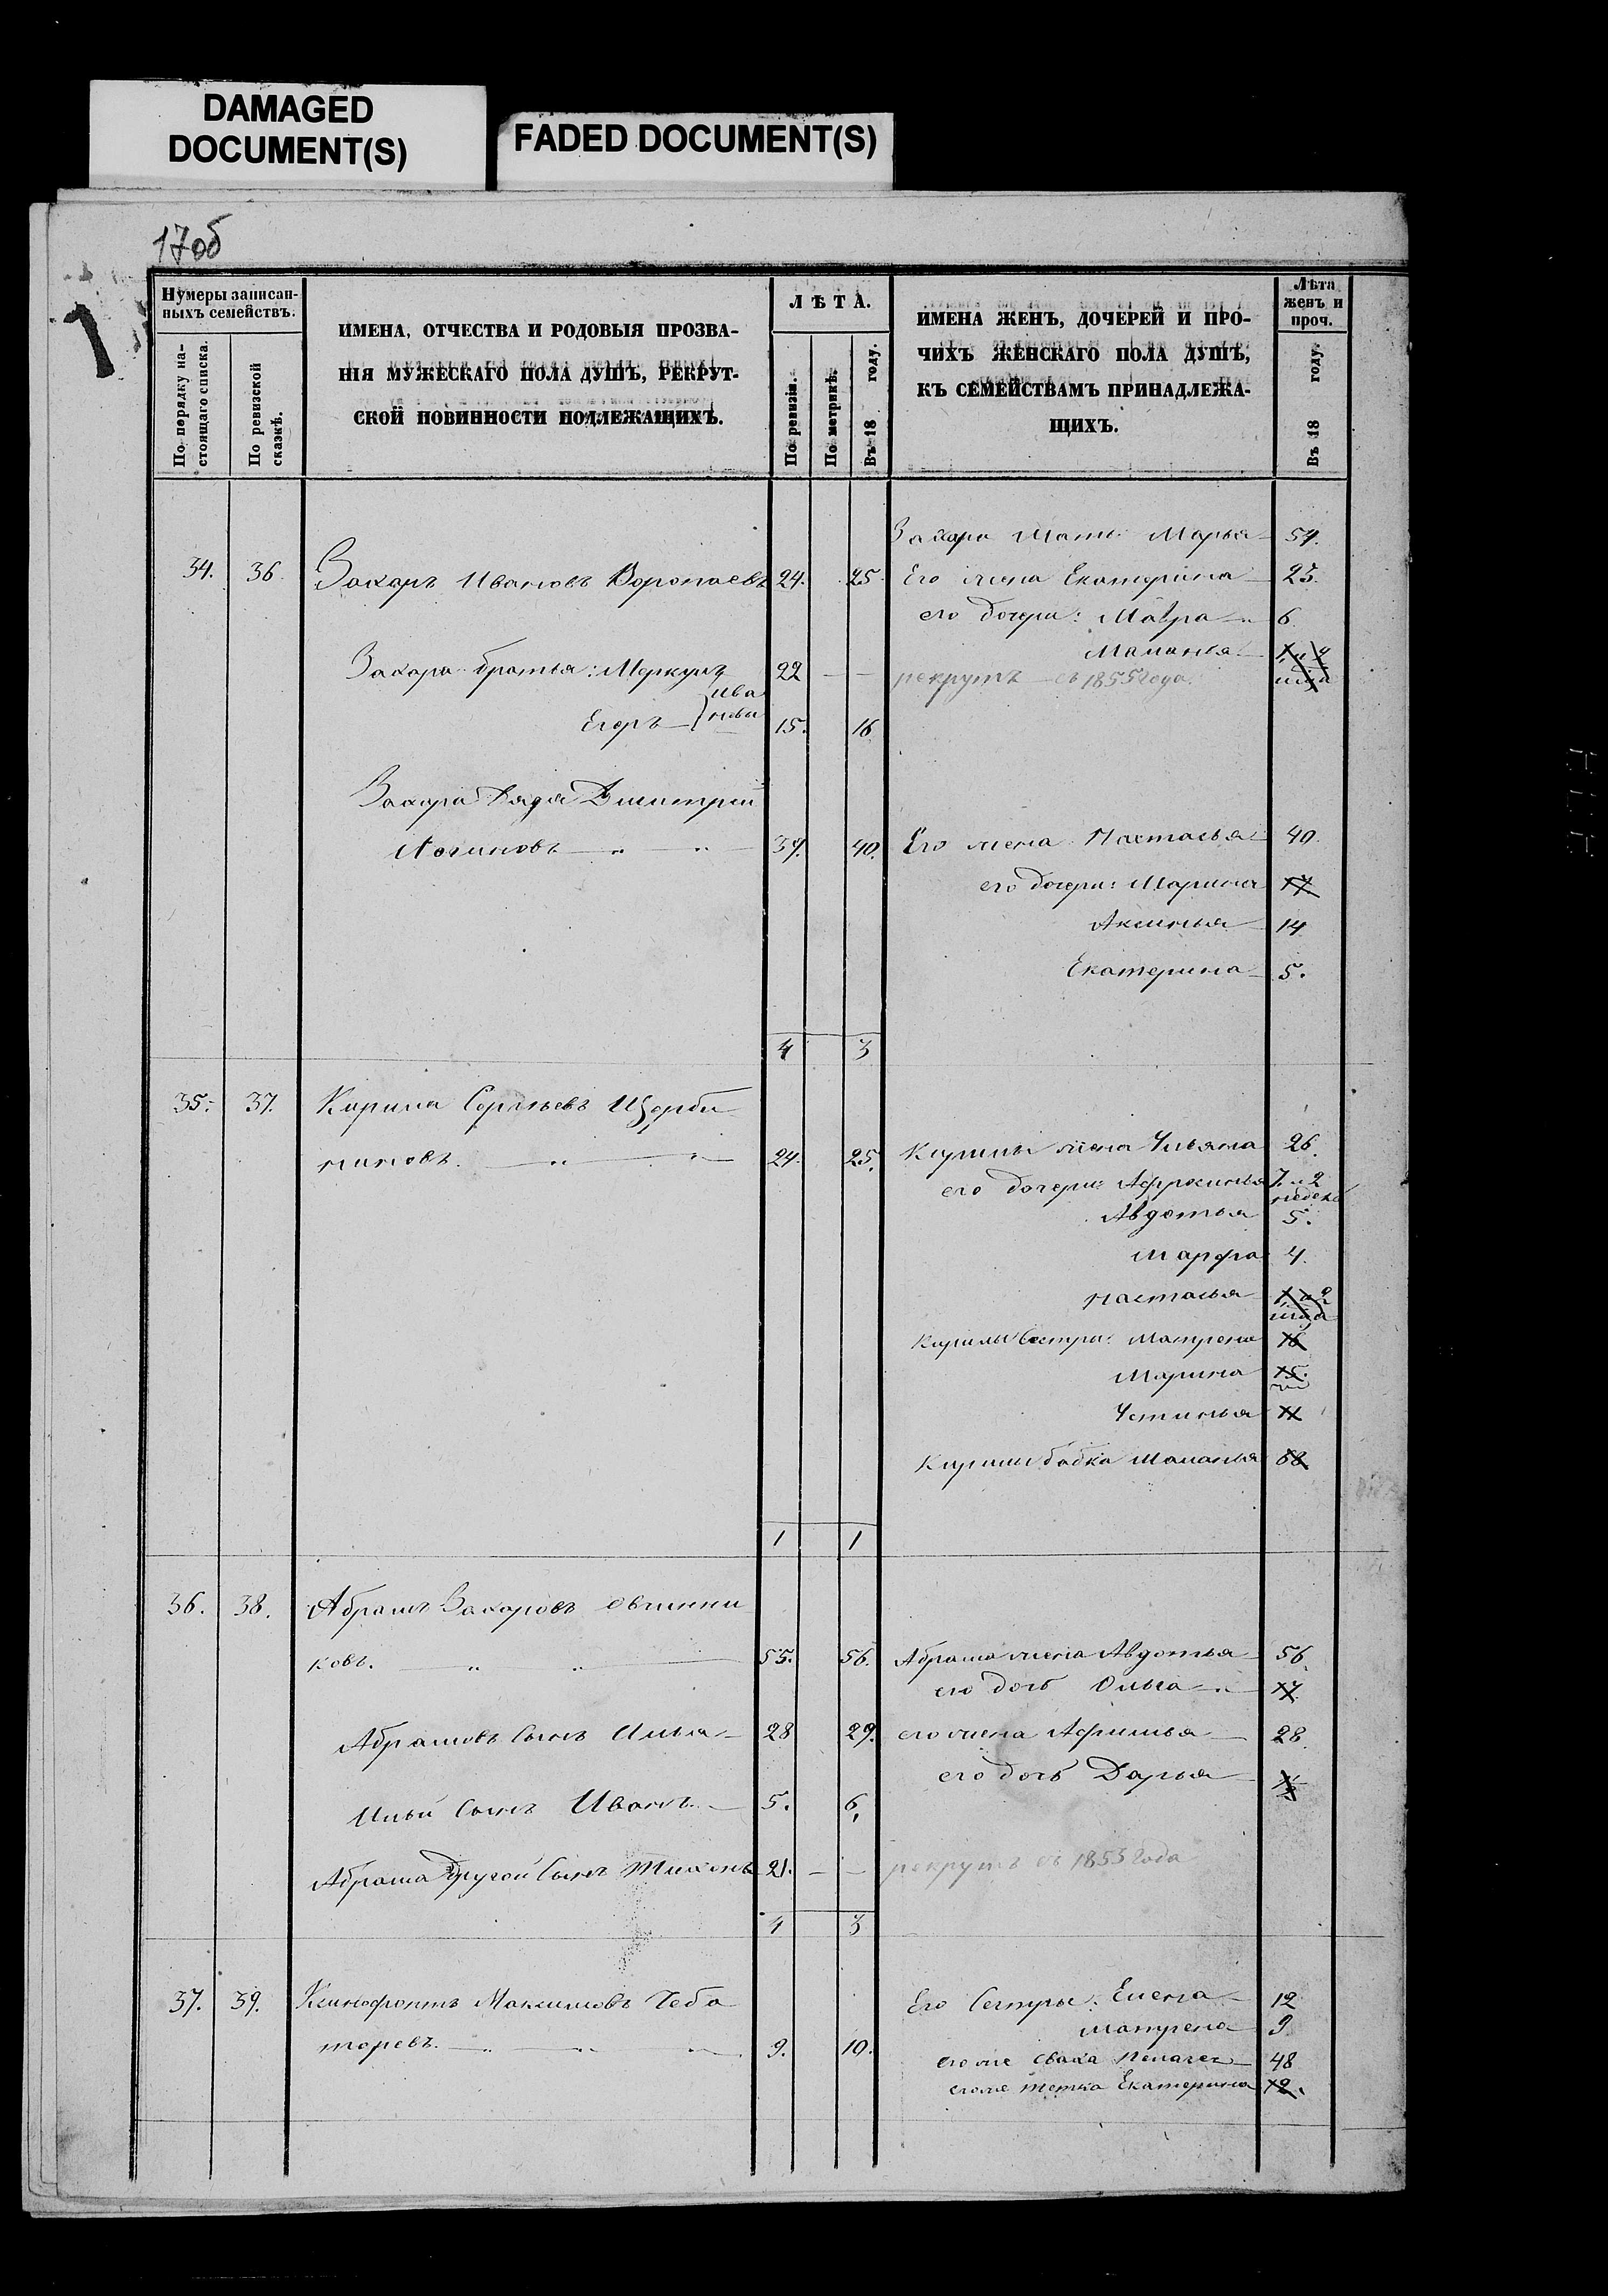 DAMAGED
DOCUMENT(S)
FADED DOCUMENT(S)
17об
1
Нумеры записан-
ныхъ семействъ.
По порядку на-
стоящаго списка.
По ревизской
сказкѣ.
ИМЕНА, ОТЧЕСТВА И РОДОВЫЯ ПРОЗВА-
НІЯ МУЖЕСКАГО ПОЛА ДУШЪ, РЕКРУТ-
СКОЙ ПОВИННОСТИ ПОДЛЕЖАЩИХЪ.
ЛѢТА.
По ревизіи.
По метрикѣ.
Въ 18 году.
ИМЕНА ЖЕНЪ, ДОЧЕРЕЙ И ПРО-
ЧИХЪ ЖЕНСКАГО ПОЛА ДУШЪ,
КЪ СЕМЕЙСТВАМЪ ПРИНАДЛЕЖА-
ЩИХЪ.
Лѣта
женъ и
проч.
Въ 18 году.
Захара Мать Марья 54.
34. 36. Захаръ Ивановъ Воропаевъ 24. 25. Его жена Екатерина 23.
его дочери: Мавра 6.
Маланья
Захара братья: Меркулъ 22 — — рекрутъ съ 1855 года.
Ива
Егоръ новы 15. 16
Захара Дядя Дмитрий
Логиновъ 39. 40. Его жена Настасья 40.
его дочери: Марина 17
Аксинья 14
Екатерина 5.
4 3
35. 37. Кирила Сергѣевъ Щерби
ниновъ. 24. 25. Кирилы жена Ульяна 26.
его дочери: Афросинья 7. и 2
недели
Авдотья 5.
Марфа 4.
Настасья
Кирилы Сестры: Матрена 18
Марина 15.
Устинья 11
Кирилы бабка Маланья 68
1 1
36. 38. Абрамъ Захаровъ Овчинни
ковъ. 55. 56. Абрама жена Авдотья 56.
его дочь Ольга 17.
Абрамовъ Сынъ Илья 28 29. его жена Афимья 28.
его дочь Дарья
Ильи Сынъ Иванъ 5. 6.
Абрама Другой Сынъ Тихонъ 21. — — рекрутъ съ 1853 года
4 3
37. 39. Ксинофонтъ Максимовъ Чебо
таревъ. 9. 10. Его Сестры: Елена 12
Матрена 9
его же сваха Пелагея 48
его же тетка Екатерина 12.